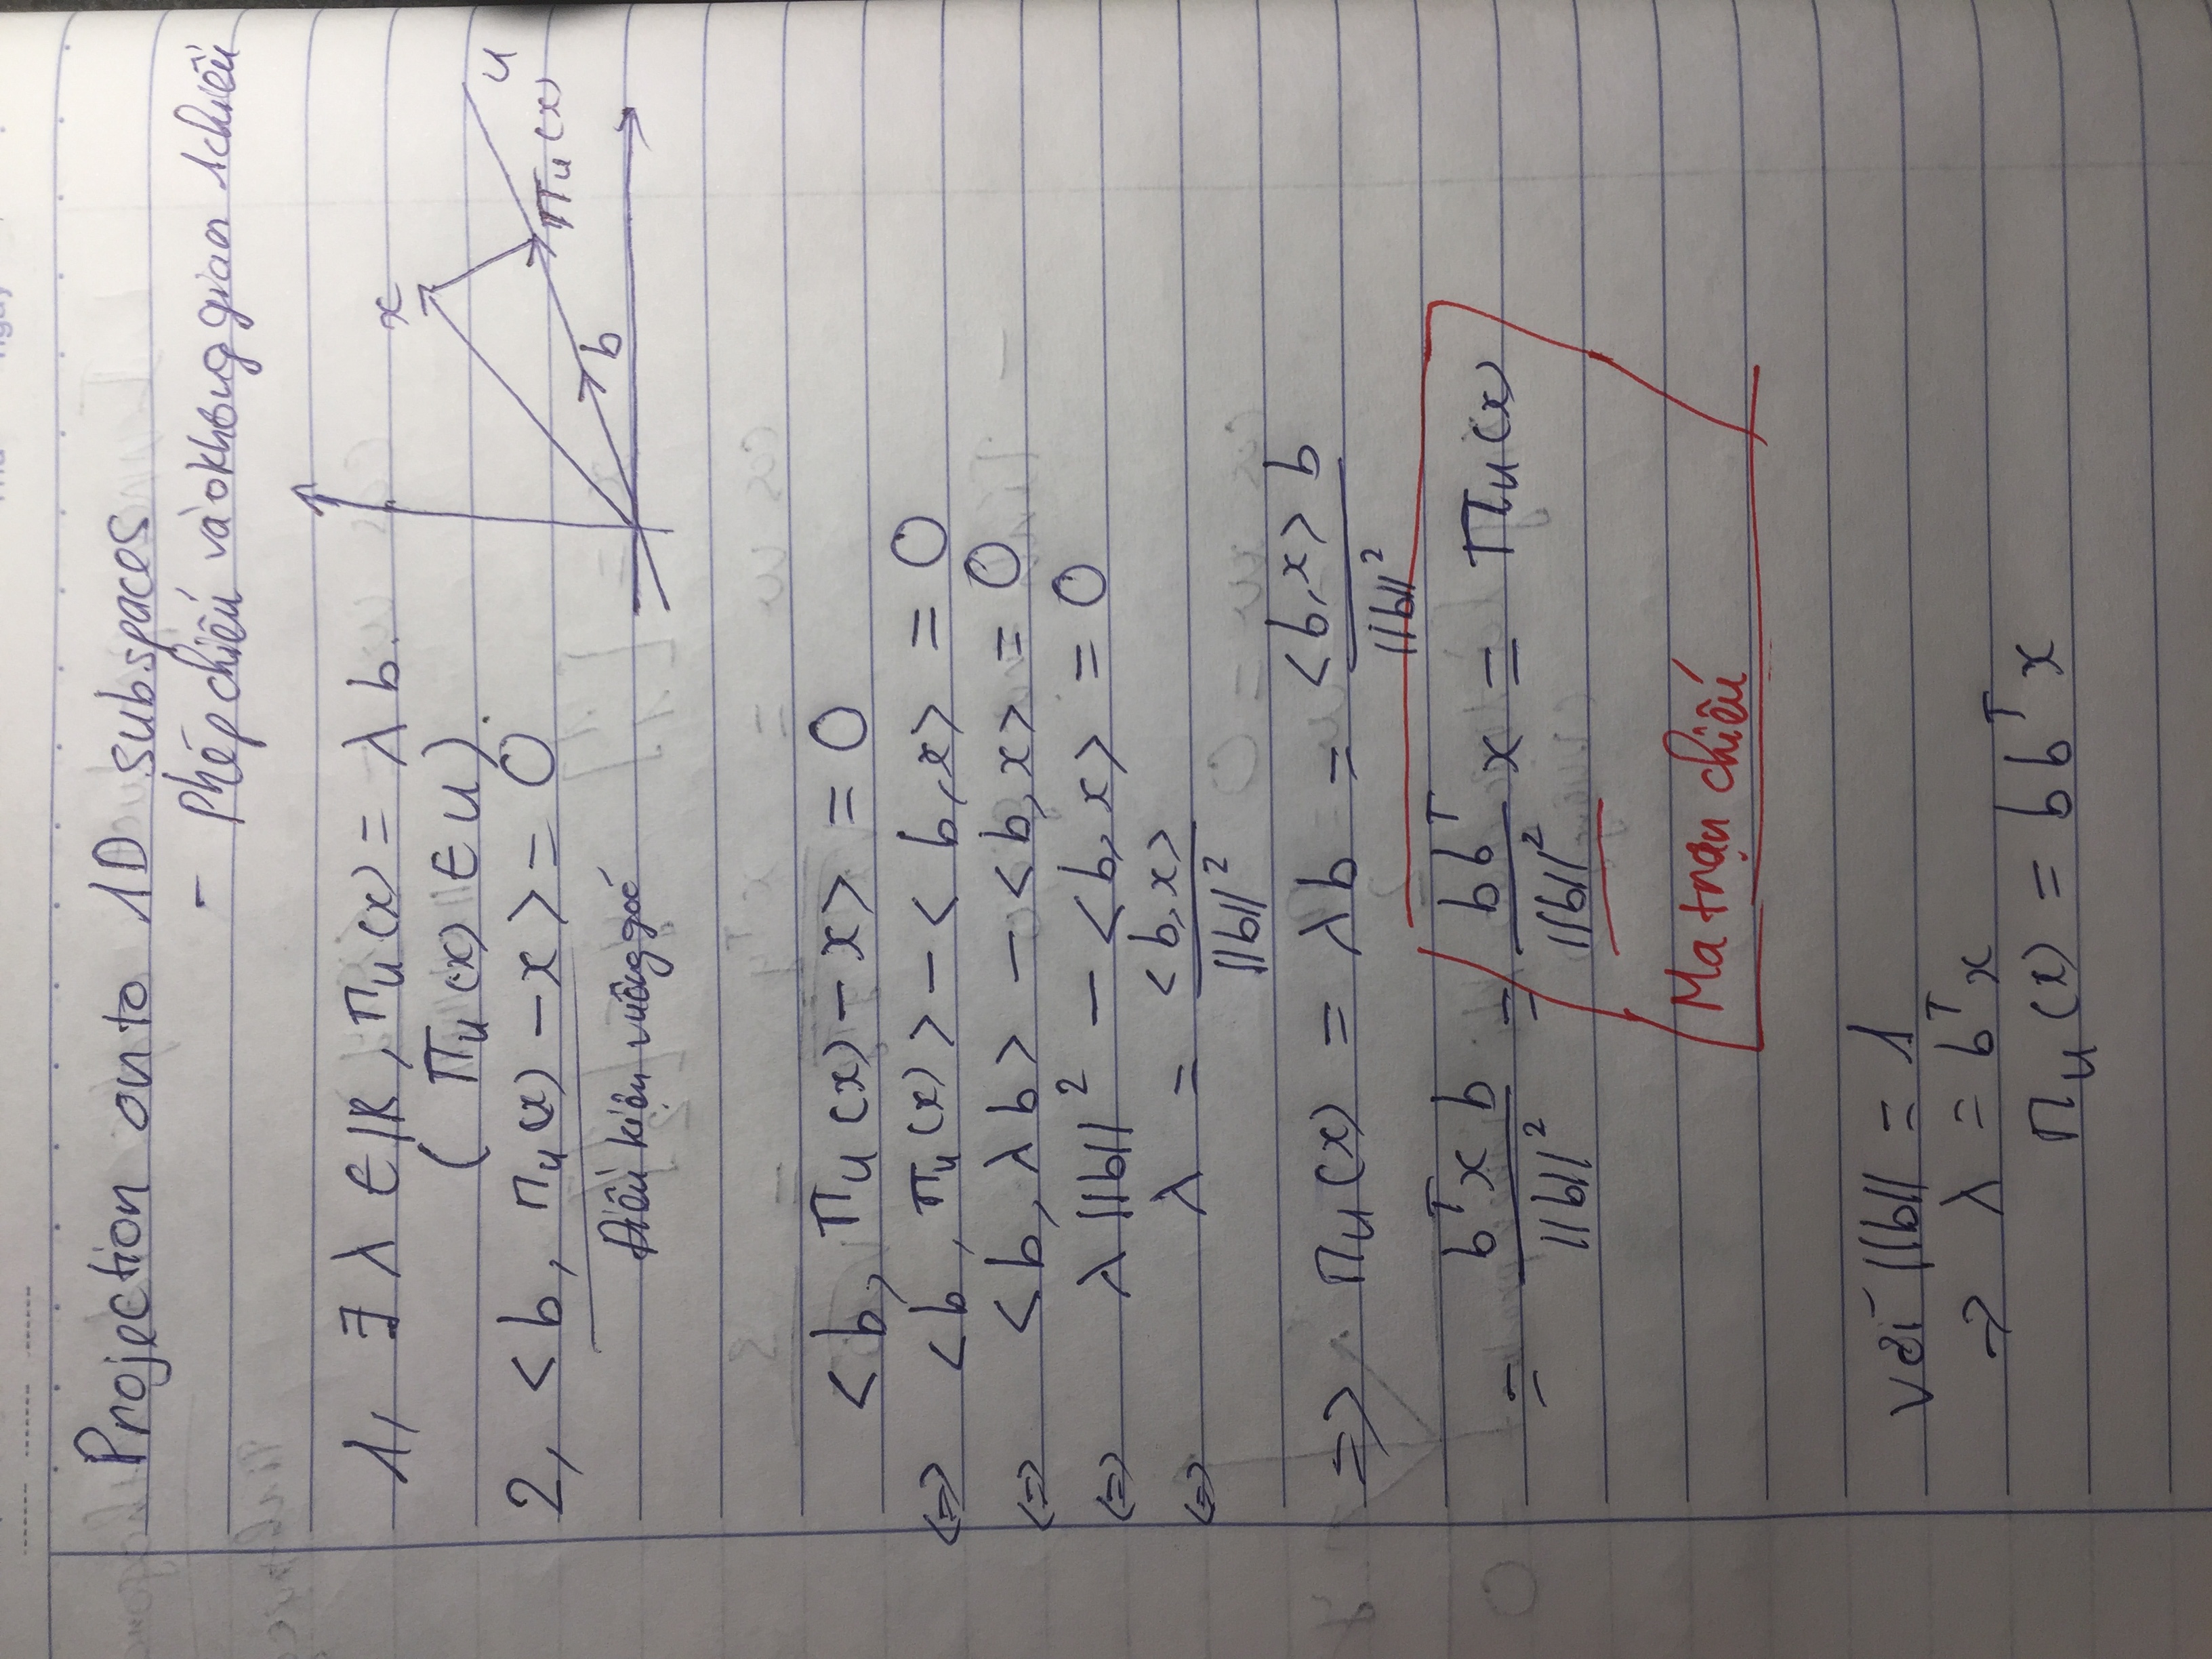 Thứ ngày
Projection onto 1D subspaces
- Phép chiếu vào không gian 1 chiều
1, ∃ λ ∈ ℝ, πᵤ(x) = λ b.
(πᵤ(x) ∈ U).
2, <b, πᵤ(x) - x> = 0
Điều kiện vuông góc
x
U
πᵤ(x)
b
<b, πᵤ(x) - x> = 0
<=> <b, πᵤ(x)> - <b, x> = 0
<=> <b, λb> - <b, x> = 0
<=> λ||b||² - <b, x> = 0
<=> λ = <b, x> / ||b||²
=> πᵤ(x) = λb = <b, x> b / ||b||²
= bᵀx b / ||b||² = bbᵀ / ||b||² x = πᵤ(x)
Ma trận chiếu
với ||b|| = 1
=> λ = bᵀx
πᵤ(x) = bbᵀx